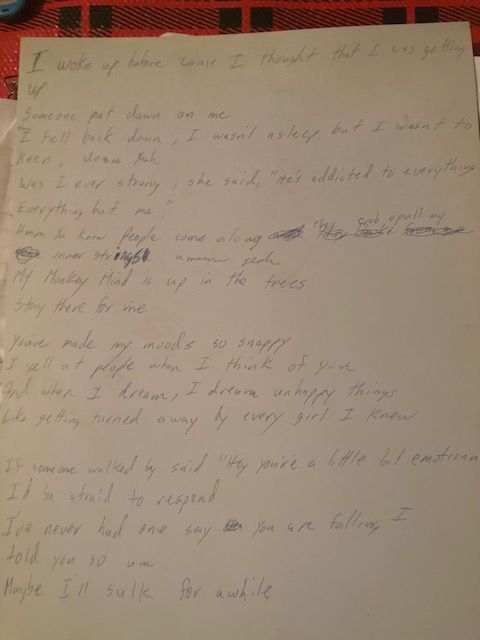 I woke up before cause I thought that I was getting
up
Someone put down on me
I fell back down, I wasn't asleep but I wasn't to
keen, Yeah
Was I ever strong, she said, "He's addicted to everything
Everything but me."
Hmm Ya know people come along They grab & pull my
inner strings ummm yeah
My Monkey Mind is up in the trees
Stay there for me
You've made my moods so snappy
I yell at people when I think of you
And when I dream, I dream unhappy things
Like getting turned away by every girl I knew
If someone walked by said "Hey you're a little bit emotional
I'd be afraid to respond
I've never had one say you are falling I
told you so um
Maybe I'll sulk for awhile